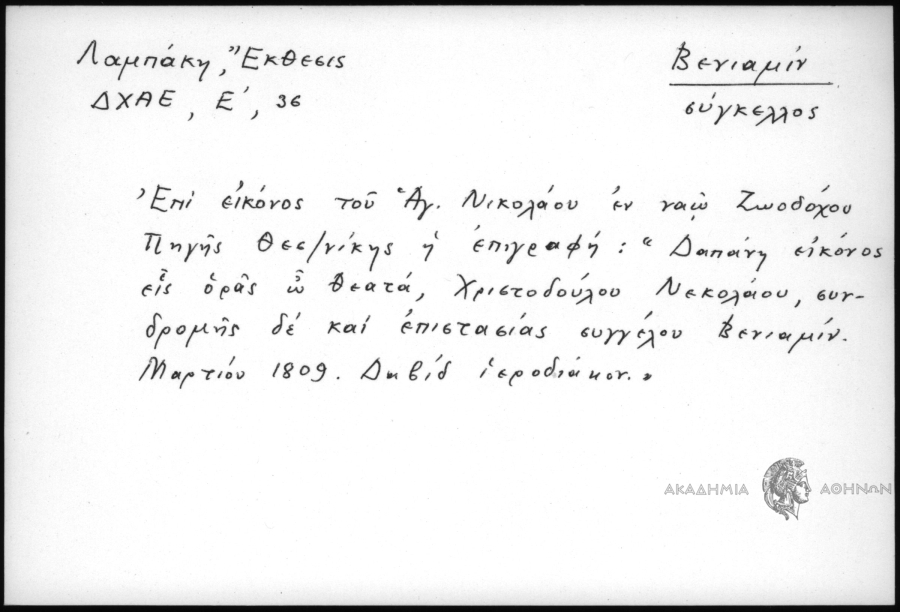 Λαμπάκη, Ἔκθεσις
ΔΧΑΕ, Ε΄, 36
Βενιαμίν
σύγκελλος
Ἐπί εἰκόνος τοῦ Ἁγ. Νικολάου ἐν ναῷ Ζωοδόχου
Πηγῆς Θεσ/νίκης ἡ ἐπιγραφή : "Δαπάνῃ εἰκόνος
εἧς ὁρᾶς ὦ θεατά, Χριστοδούλου Νεκολάου, συν-
δρομῆς δέ καί ἐπιστασίας συγγέλου Βενιαμίν.
Μαρτίου 1809. Δαβίδ ἱεροδιάκον."
ΑΚΑΔΗΜΙΑ ΑΘΗΝΩΝ